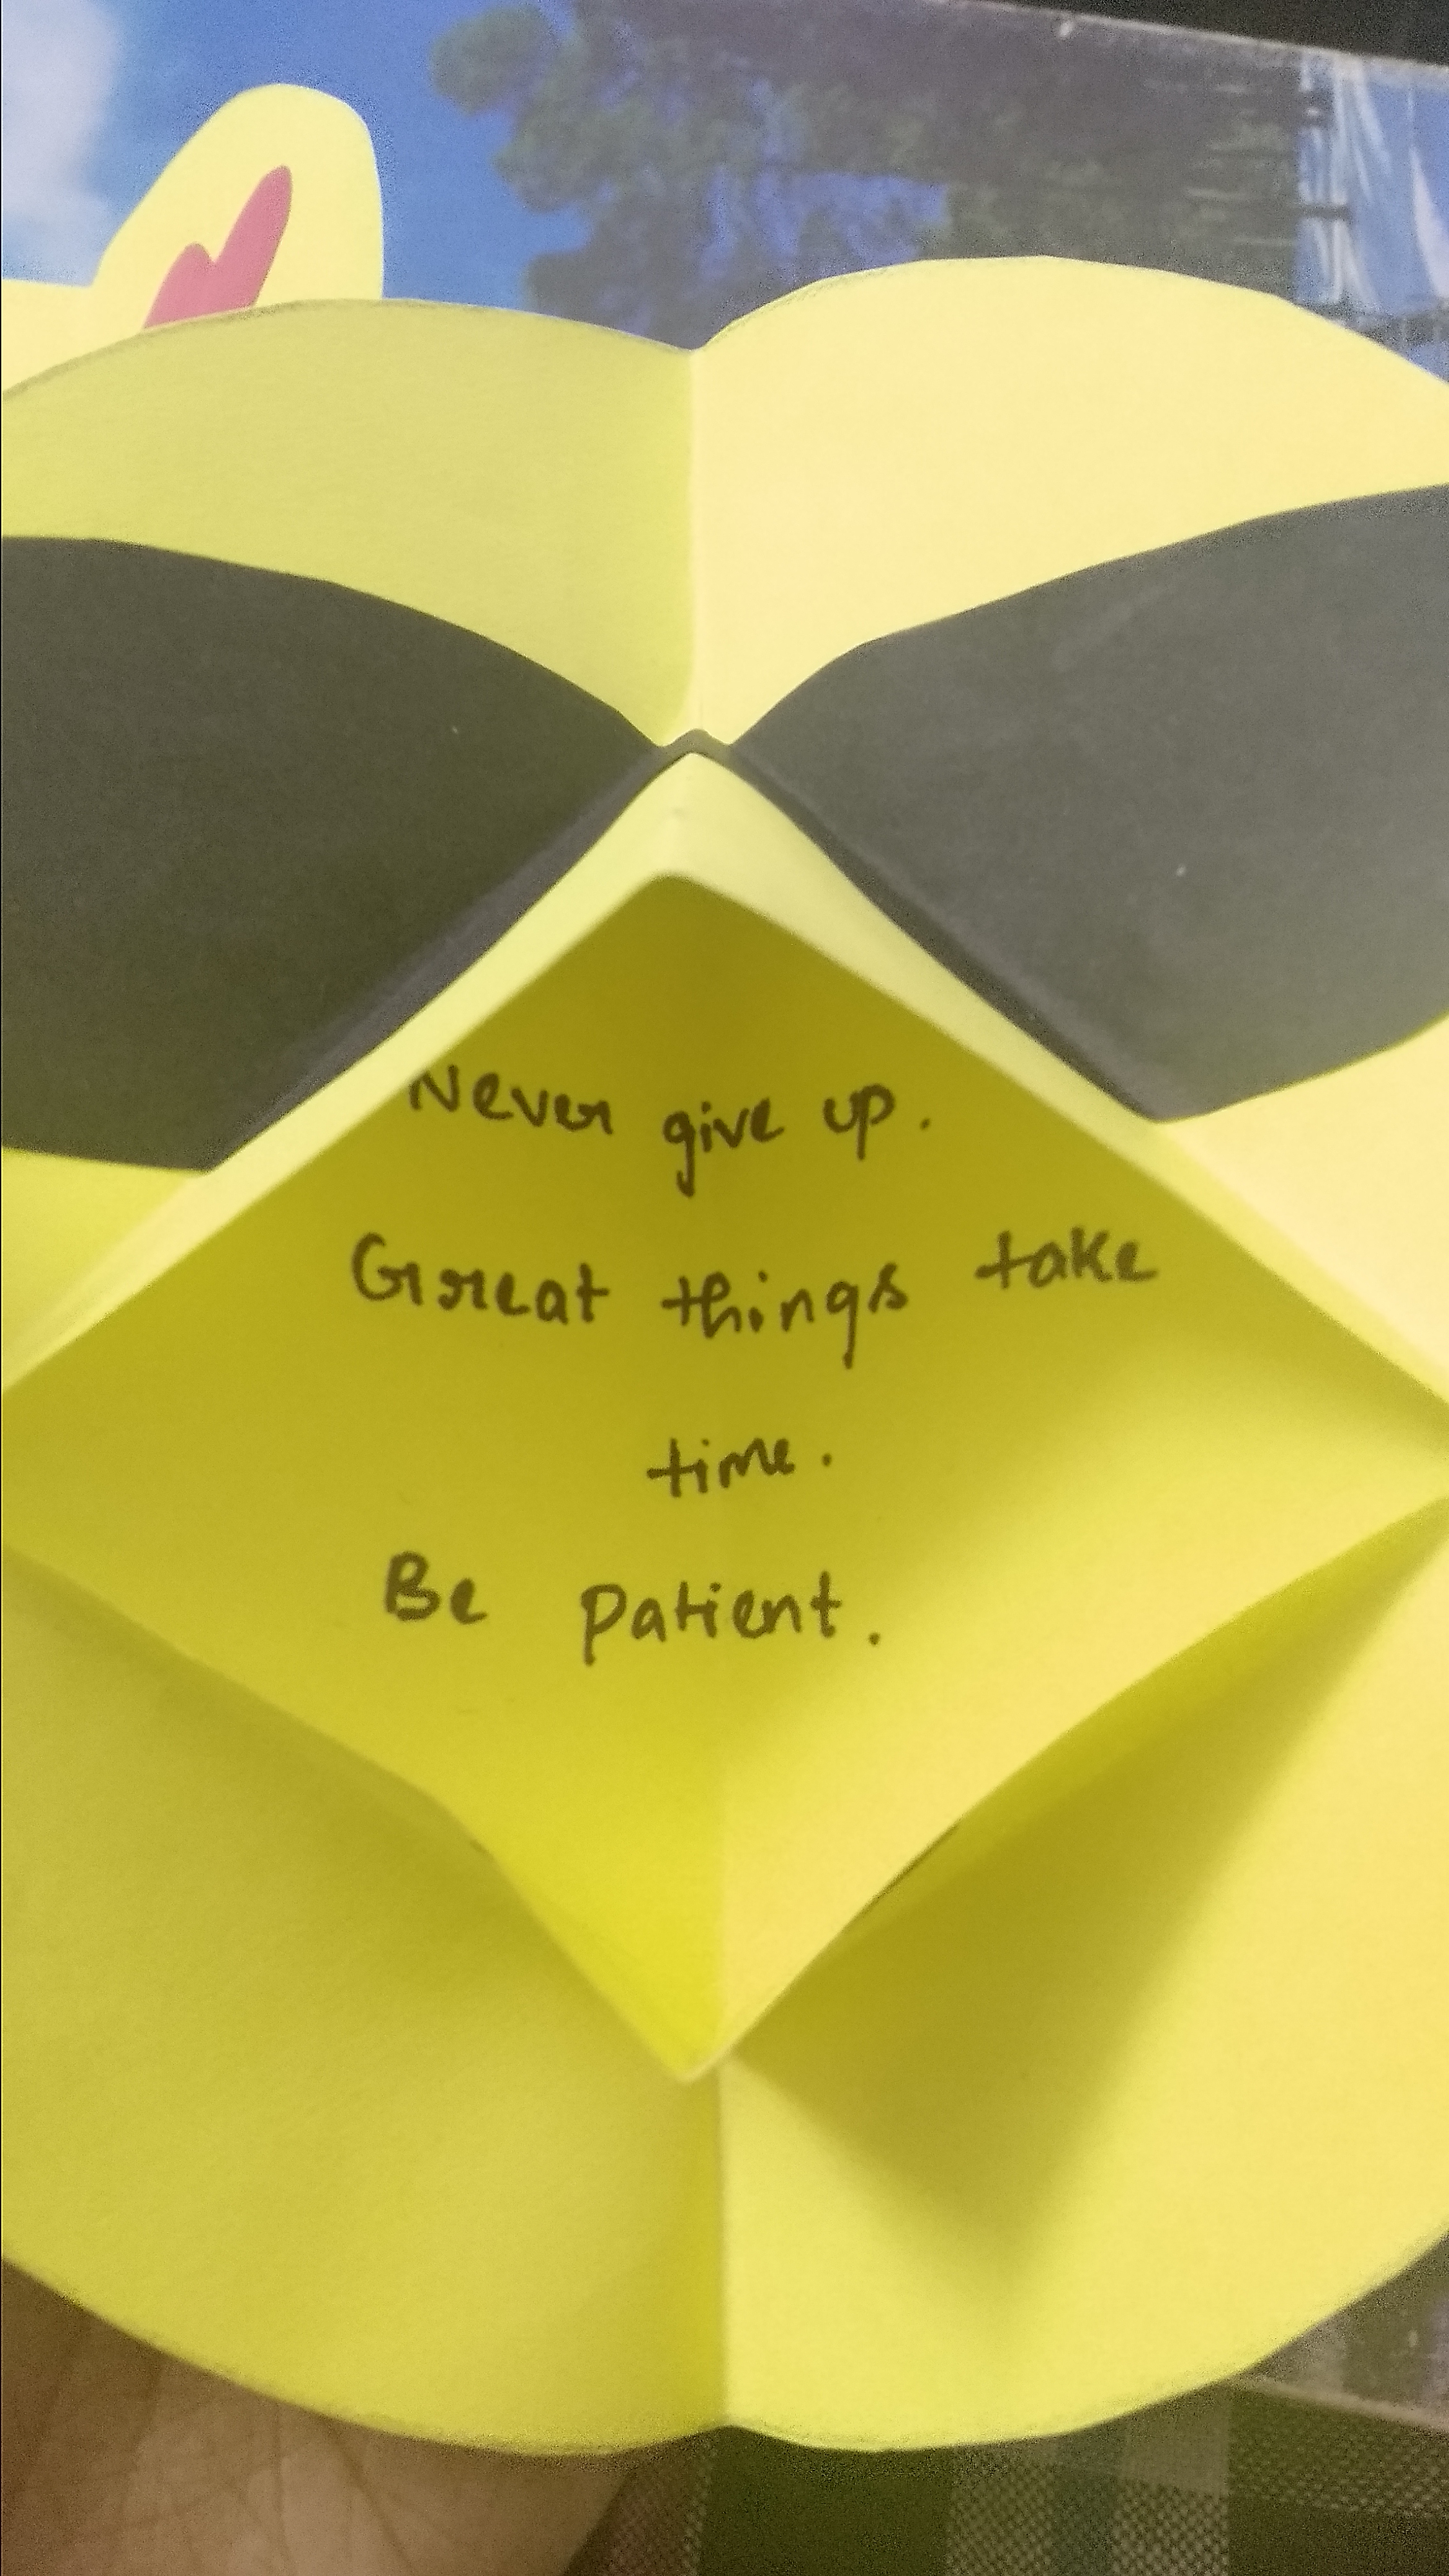 Never give up.
Great things take
time.
Be patient.